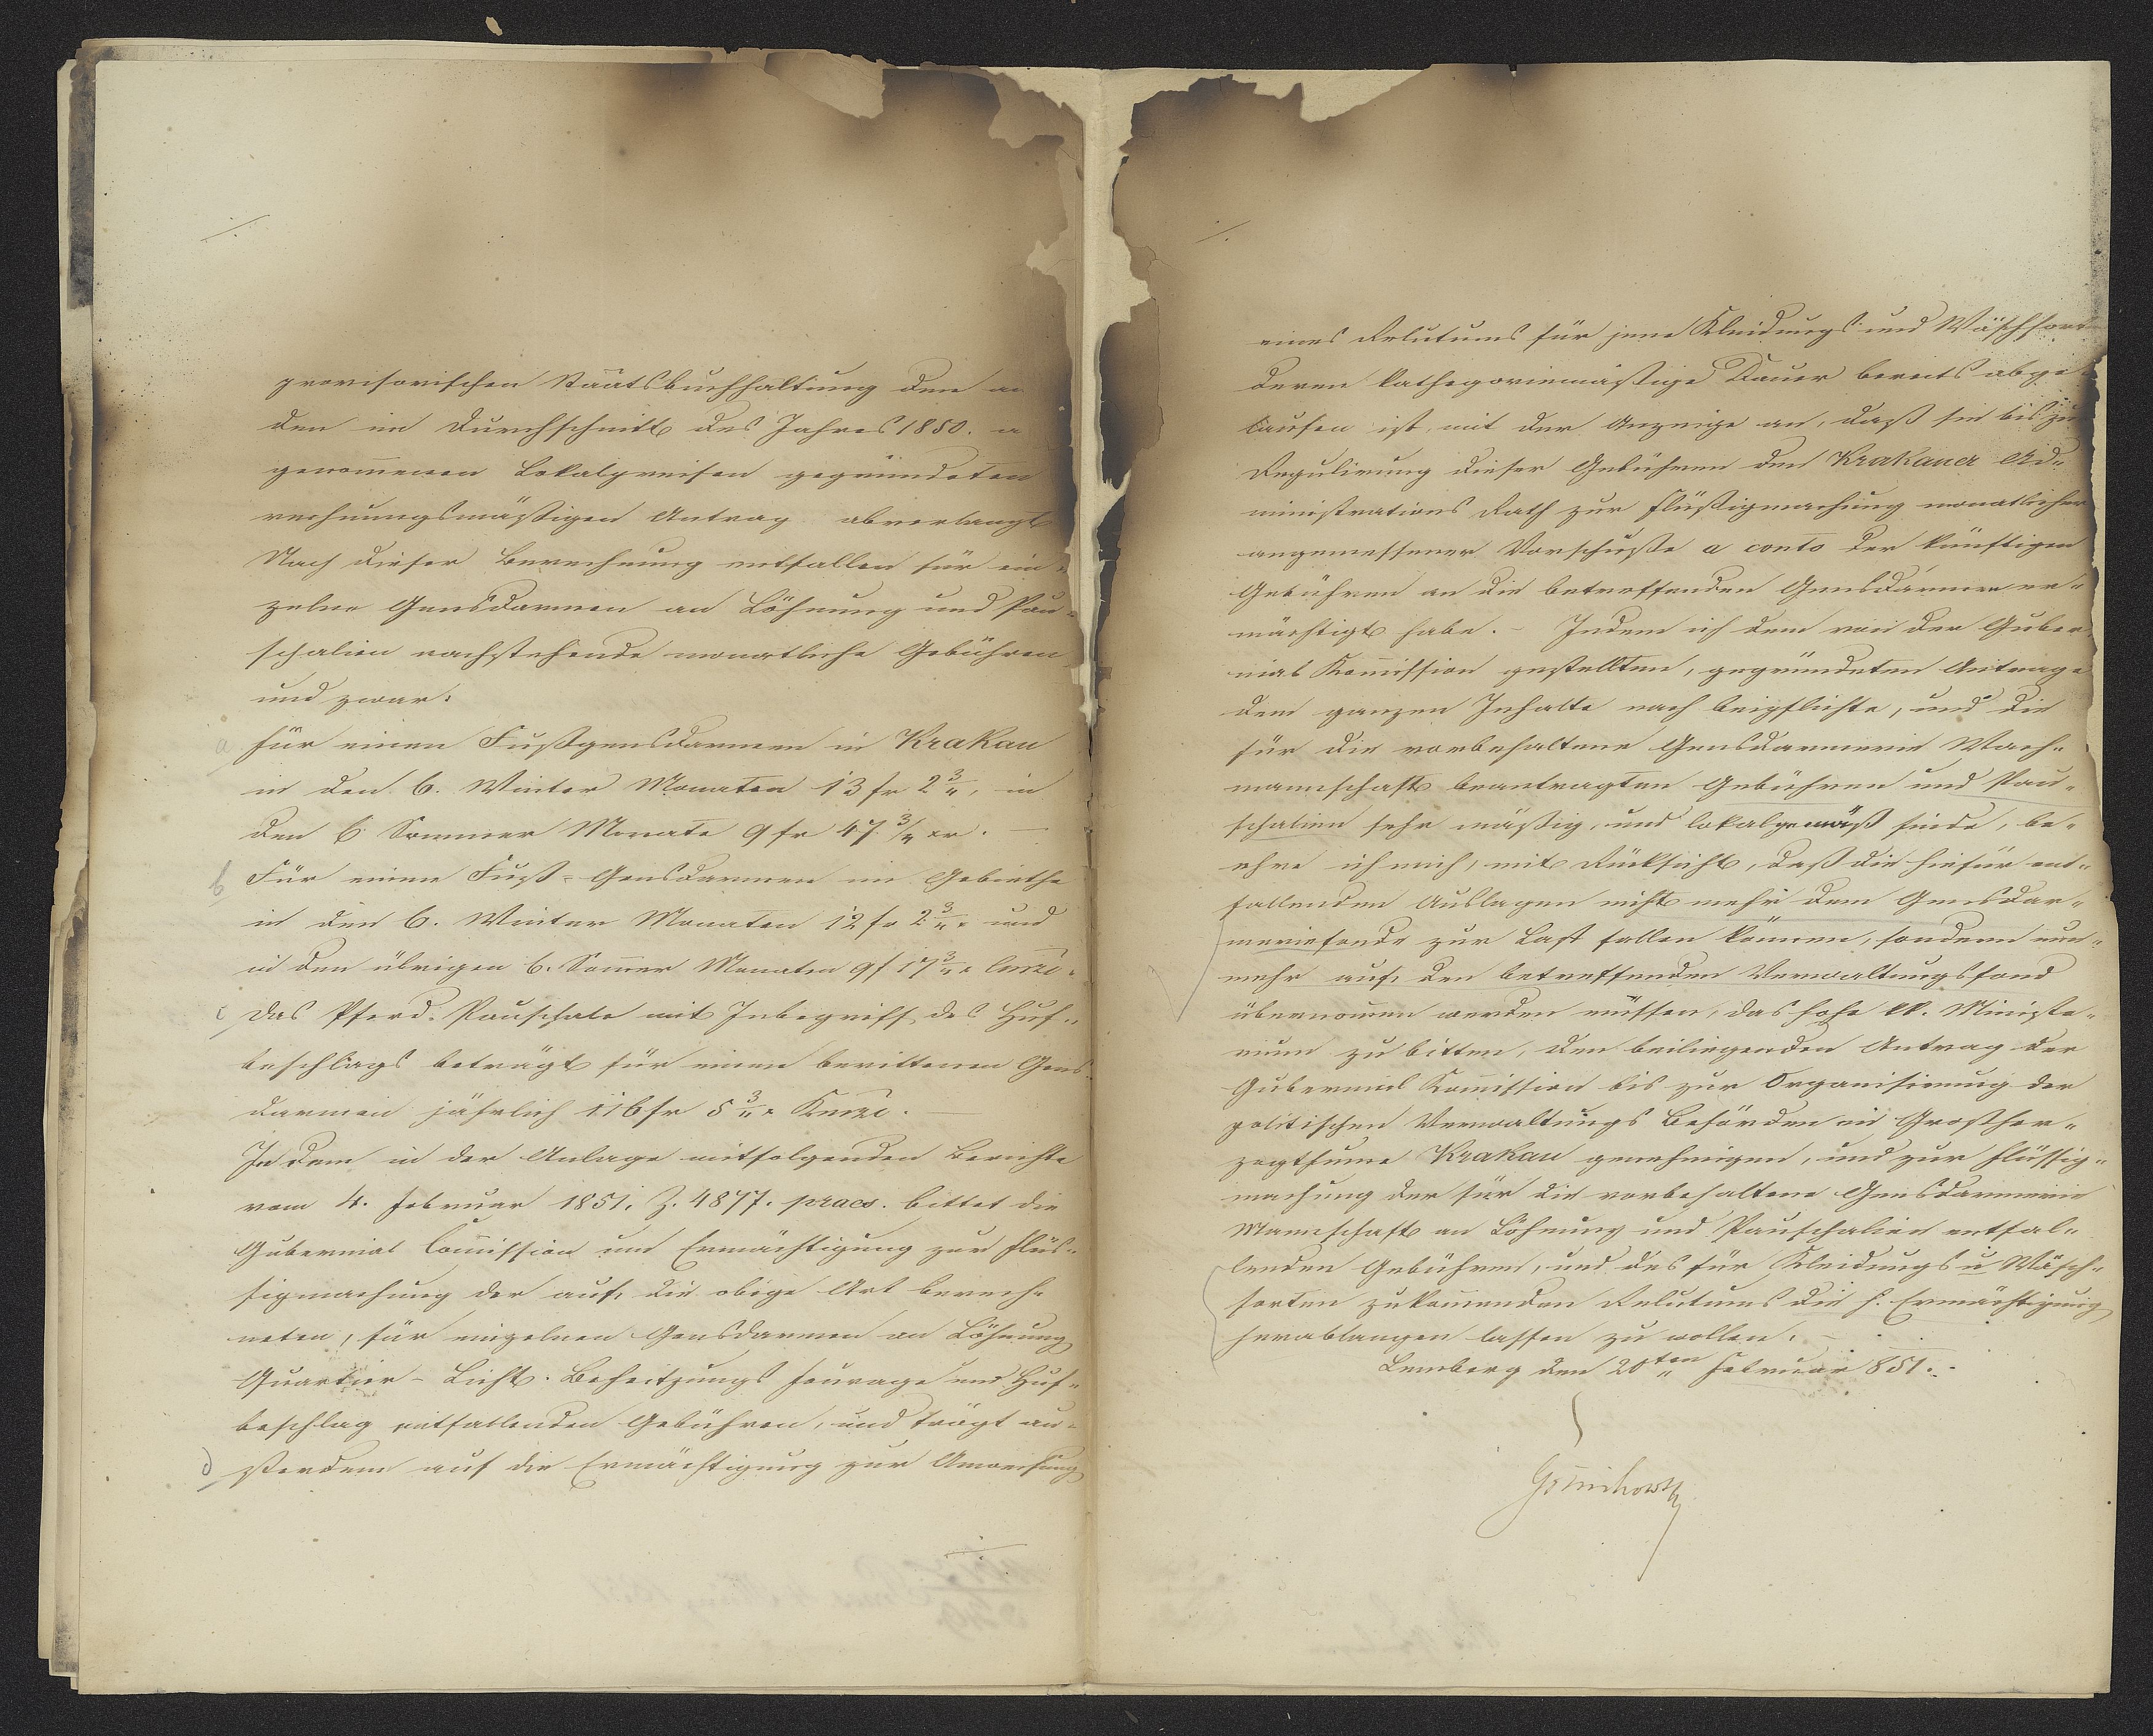 provisorischen Staatsbuchhaltung den an
den im Durchschnitt des Jahres 1850. a
genom̅enen Lokalpreisen gegründeten
rechnungsmäßigen Antrag abverlangt
Nach dieser Berechnung entfallen für ein-
zelne Gensdarmen an Löhnung und Pau-
schalien nachstehende monatliche Gebühren
und zwar:
a für einen Fußgensdarmen in Krakau
in den 6. Winter Monaten 13 fr 2 3/4, in
den 6 Sommer Monate 9 fr 47 3/4 xr. —
b Für einen Fuß-Gensdarmen im Gebiethe
in den 6. Winter Monaten 12 fr 2 3/4 x und
in den übrigen 6. Som̅er Monaten 9f 17 3/4 x
c Das Pferd-Pauschale mit Inbegriff des Huf-
beschlags beträgt für einen berittenen Gens-
darmen jährlich 116 fr 5 3/4 x
In dem in der Anlage mitfolgenden Berichte
vom 4. Februar 1851. Z. 4877. praes. bittet die
Gubernial Com̅ission um Ermächtigung zur Flüs-
sigmachung der auf die obige Art berech-
neten, für einzelnen Gensdarmen an Löhnung
Quartier- Licht- Beheitzungs Fourage und Huf-
beschlag entfallenden Gebühren, und trägt au-
d ßerdem auf die Ermächtigung zur Anweisung
eines Relutums für jene Kleidungs und Wäschsor
deren kathegoriemäßige Dauer bereits abge
laufen ist, mit der Anzeige an, daß sie bis zu
Regulirung dieser Gebühren den Krakauer Ad-
ministrations Rath zur Flüßigmachung monatlicher
angemessener Vorschüße a conto der künftigen
Gebühren an die betreffenden Gensdarmen er-
mächtigt habe. — Indem ich dem von der Guber-
nial Kom̅ission gestellten, gegründeten Antrage
dem ganzen Inhalte nach beipflichte, und die
für die vorbehaltene Gensdarmerie Wach-
mannschaft beantragten Gebühren und Pau-
schalien sehr mäßig, und lokalgemäß finde, be-
ehre ich mich, mit Rücksicht, daß die hiefür ent-
fallenden Auslagen nicht mehr dem Gensdar-
meriefonde zur Last fallen können, sondern nun-
mehr auf den betreffenden Verwaltungsfond
übernom̅en werden müssen, das hohe kk. Ministe-
rium zu bitten, den beiliegenden Antrag der
Gubernial Kom̅ission bis zur Organisirung der
politischen Verwaltungs Behörden im Großher-
zogthume Krakau genehmigen, und zur Flüssig-
machung der für die vorbehaltene Gensdarmerie
Mannschaft an Löhnung und Pauschalien entfal-
lenden Gebühren, und des für Kleidungs u Wäsch-
sorten zukom̅enden Relutums die h. Ermächtigung
herablangen lassen zu wollen. —
Lemberg den 20ten Februar 851. —